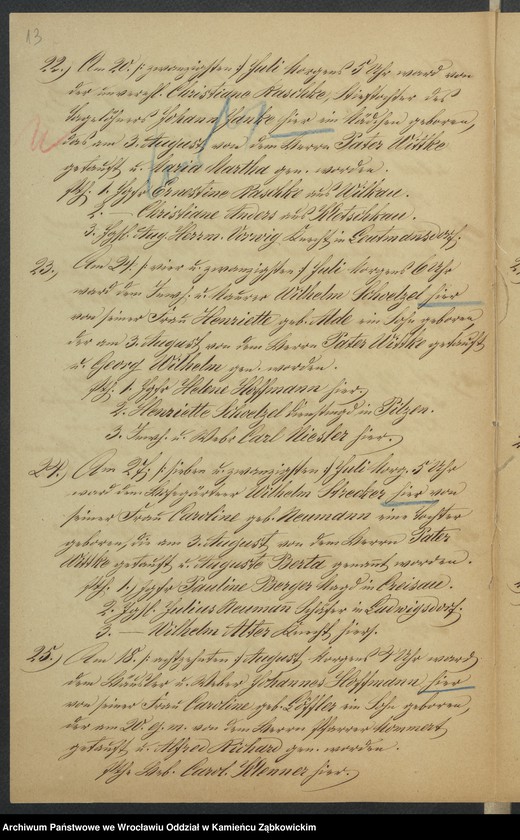 13
22.) Am 20. /: zwanzigsten :/ Juli Morgens 5 Uhr ward von
der unverehl. Christiane Raschke, Stieftochter des
Tagelöhners Johann Hanke hier ein Mädchen geboren,
das am 3. August von dem Herrn Pater Wittke
getauft u. Maria Martha gen. worden.
1. Jgfr Ernestine Raschke aus Wilkau.
2. — Christiane Anders aus Kletschkau.
3. Jggs. Aug. Herrm. Knecht in Leutmansdorf.
23.) Am 24. /: vier u. zwanzigsten :/ Juli Morgens 6 Uhr
ward dem Inw. u. Maurer Wilhelm Schwetzel hier
von seiner Frau Henriette geb. ein Sohn geboren,
der am 3. August von dem Herrn Pater Wittke getauft
u. Georg Wilhelm gen. worden.
1. Jgfr Helene Hoffmann hier.
2. Henriette Schwetzel Dienstmgd in Pilzen.
3. Inw. u. Weber Carl Niesler hier.
24.) Am 27. /: sieben u. zwanzigsten :/ Juli Morg. 5 Uhr
ward dem Wilhelm Strecker hier von
seiner Frau Caroline geb. Neumann eine Tochter
geboren, die am 3. August von dem Herrn Pater
Wittke getauft u. Auguste Berta genant worden.
1. Jgfr Pauline Berger Magd in Creisau.
2. Jggs. Julius Neuman Schäfer in Ludwigsdorf.
3. — Wilhelm Alter Knecht hier.
25.) Am 18. /: achtzehnten :/ August Morgens 4 Uhr ward
dem Häusler u. Weber Johannes Hoffmann hier
von seiner Frau Caroline geb. Löffler ein Sohn geboren,
der am 20. ej. m. von dem Herrn Pfarrer Kommert
getauft u. Alfred Richard gen. worden.
Carol. Klenner hier.
Archiwum Państwowe we Wrocławiu Oddział w Kamieńcu Ząbkowickim